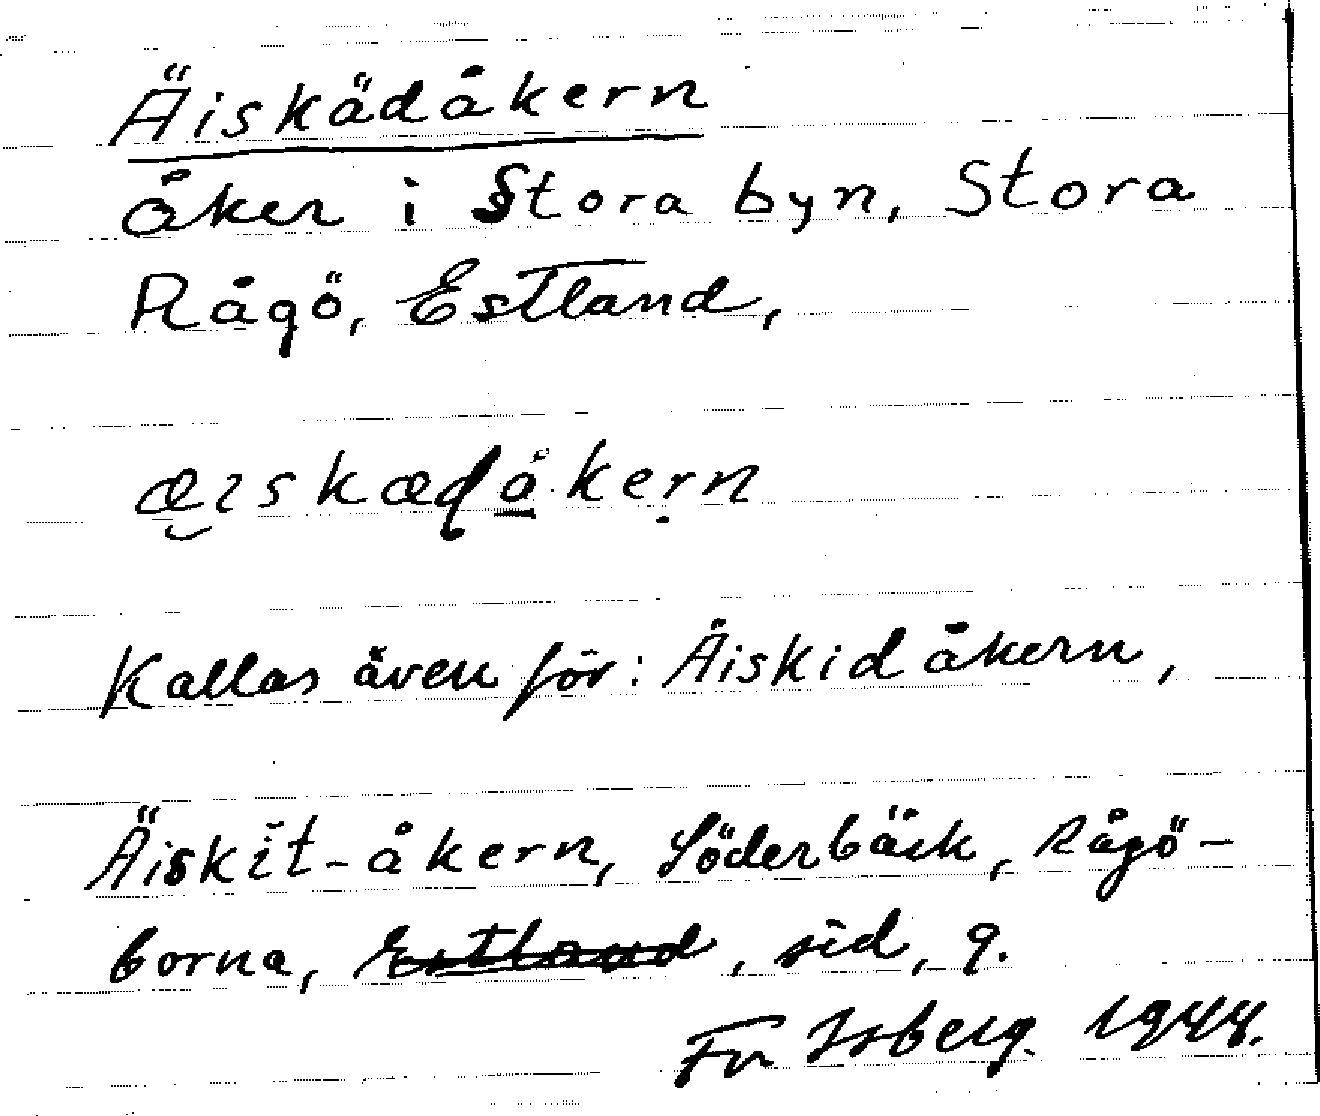 Äiskädåkern
åker i Stora byn, Stora
Rågö, Estland,
æiskædåkern
Kallas även för: Äiskidåkern,
Äiskit-åkern, Söderbäck, Rågö-
borna, Estland, sid, 9.
Fr Isberg. 1944.